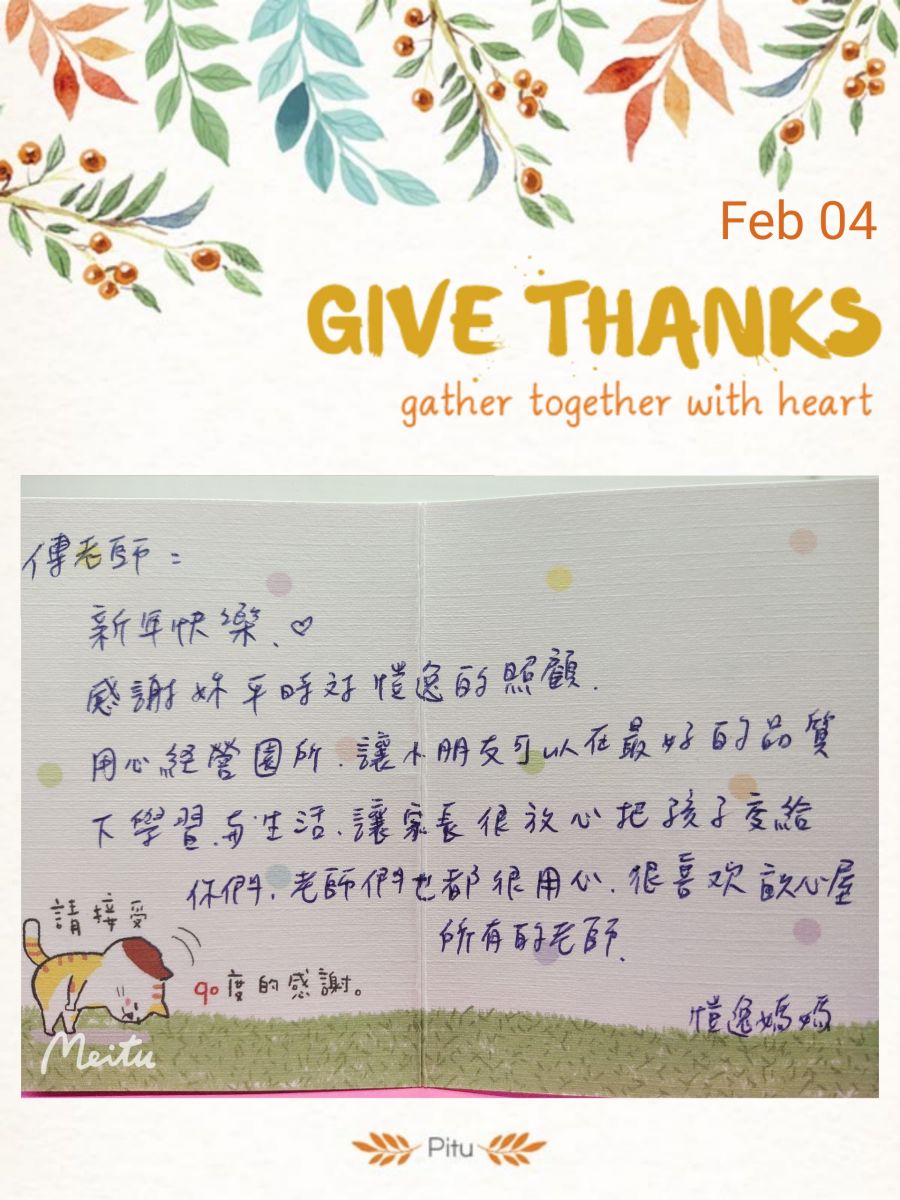 Feb 04
GIVE THANKS
gather together with heart
傅老師：
新年快樂.♡
感謝妳平時對愷逸的照顧.
用心經營園所.讓小朋友可以在最好的品質
下學習與生活.讓家長很放心把孩子交給
你們.老師們也都很用心.很喜欢歆心屋
所有的老師.
請接受
90度的感謝。
愷逸媽媽
Meitu
Pitu